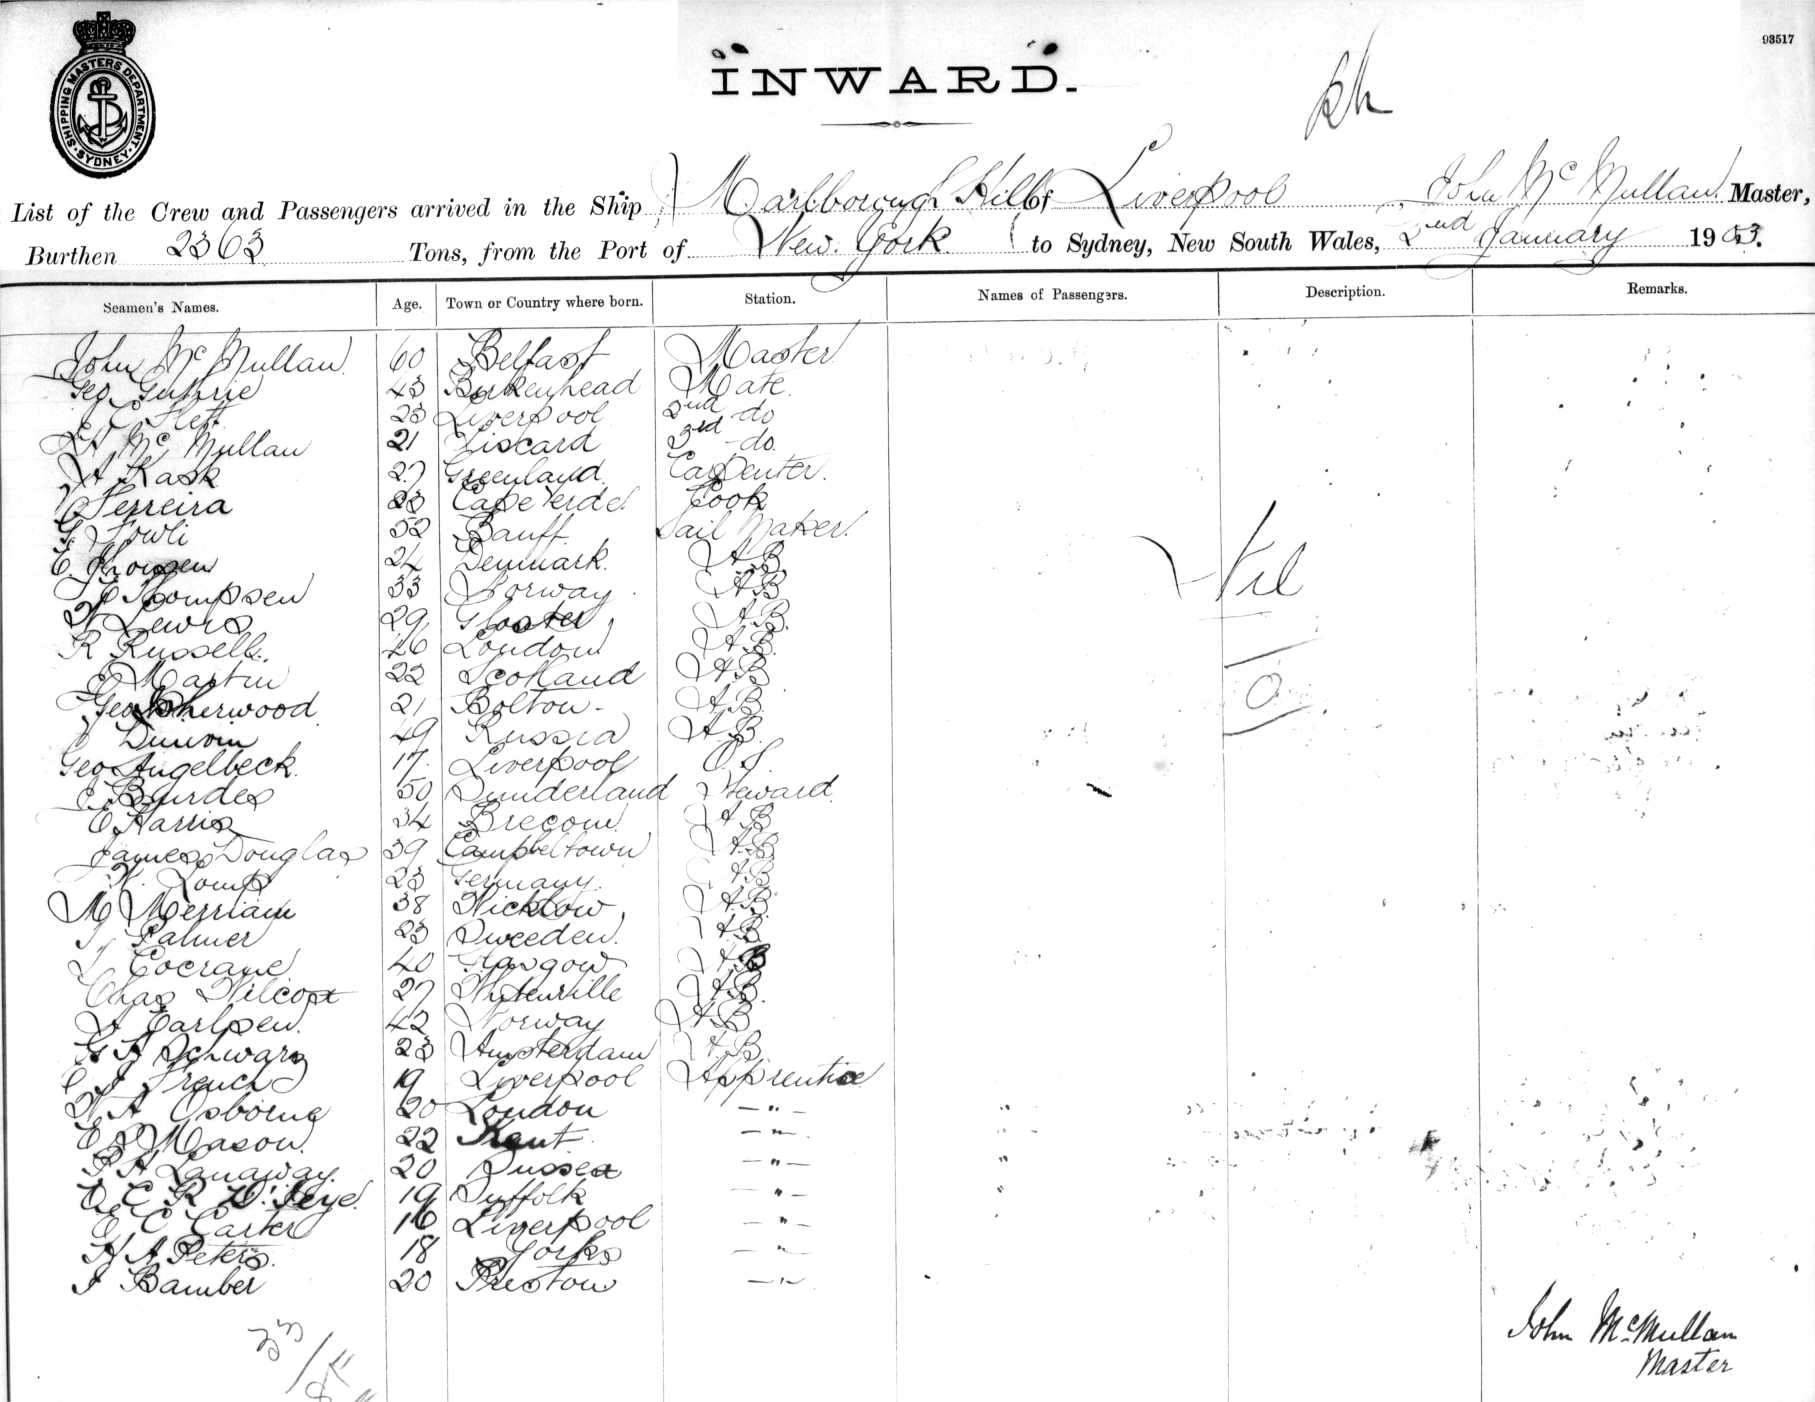 93517
SHIPPING MASTERS DEPARTMENT
SYDNEY
INWARD.
List of the Crew and Passengers arrived in the Ship Marlborough Hill of Liverpool John McMullan Master,
Burthen 2363 Tons, from the Port of New York to Sydney, New South Wales, 2nd January 1903.
Seamen's Names. Age. Town or Country where born. Station. Names of Passengers. Description. Remarks.
John McMullan 60 Belfast Master
Geo Guthrie 43 Birkenhead Mate
23 Liverpool 2nd do
McMullan 21 Liscard 3rd do
A Kask 27 Greenland Carpenter.
Ferreira 23 Cape Verde Cook
G. Fowli 52 Banff Sail Maker.
E. 24 Denmark. AB
Thompsen 33 Norway AB
W Lewis 29 Gloster AB
R Russell 46 London AB
Martin 22 Scotland AB
Geo Sherwood 21 Bolton - AB
49 Russia AB
Geo Angelbeck 17 Liverpool OS
Burdes 50 Sunderland Steward
E Harris 34 Brecon AB
James Douglas 39 Campbeltown AB
23 Germany AB
M Merriam 38 Wicklow AB
Palmer 23 Sweeden AB
Cocrane 40 Glasgow AB
Chas Wilcox 27 AB
Carlsen 42 Norway AB
G A Schwarz 23 Amsterdam AB
French 19 Liverpool Apprentice
W A Osborne 20 London - " -
Mason 22 Kent - " -
Lanaway 20 Sussex - " -
19 Suffolk - " -
E C Carter 16 Liverpool - " -
H A Peters 18 Yorks - " -
J Bamber 20 Preston - " -
Nil
0
33
John McMullan
Master